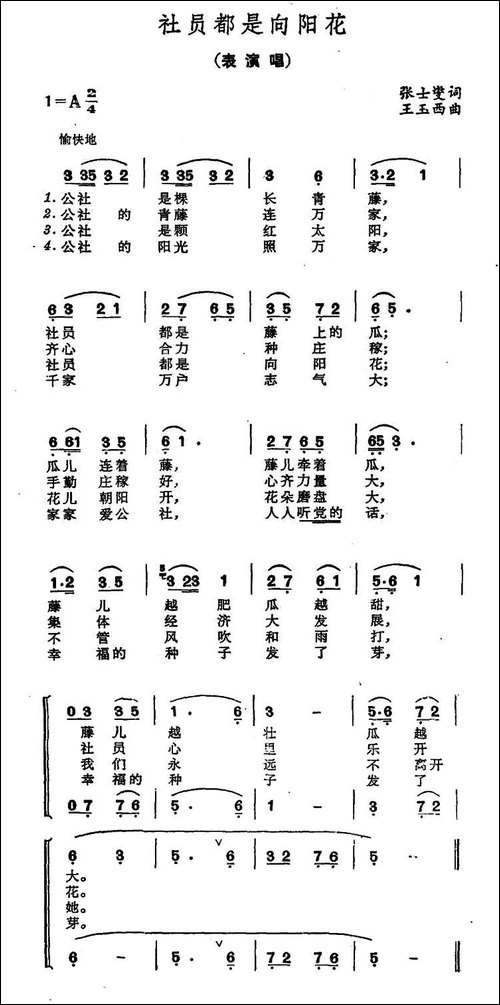 社员都是向阳花
(表演唱)
1=A 2/4
张士燮词
王玉西曲
愉快地
3 35 3 2 | 3 35 3 2 | 3 6 | 3·2 1 |
1.公社 是棵 长 青 藤,
2.公社 的 青藤 连 万 家,
3.公社 是颗 红 太 阳,
4.公社 的 阳光 照 万 家,
6 3 2 1 | 2 7 6 5 | 3 5 7 2 | 6 5· |
社员 都是 藤 上的 瓜;
齐心 合力 种 庄 稼;
社员 都是 向 阳 花;
千家 万户 志 气 大;
6 61 3 5 | 6 1· | 2 7 6 5 | 65 3· |
瓜儿 连着 藤, 藤儿牵着 瓜,
手勤 庄稼 好, 心齐力量 大,
花儿 朝阳 开, 花朵磨盘 大,
家家 爱公 社, 人人听党的 话,
1·2 3 5 | 3 23 1 | 2 7 6 1 | 5·6 1 |
藤 儿 越 肥 瓜 越 甜,
集 体 经 济 大 发 展,
不 管 风 吹 和 雨 打,
幸 福的 种 子 发 了 芽,
0 3 3 5 | 1· 6 | 3 - | 5·6 7 2 |
藤儿 越 壮 瓜 越
社员 心 里 乐 开
我们 永 远 不 离开
幸 福的 种 子 发 了
0 7 7 6 | 5· 6 | 1 - | 3 7 2 |
6 3 | 5· 6 | 3 2 7 6 | 5 - ‖
大。
花。
她。
芽。
6 - | 5· 6 | 7 2 7 6 | 5 - ‖